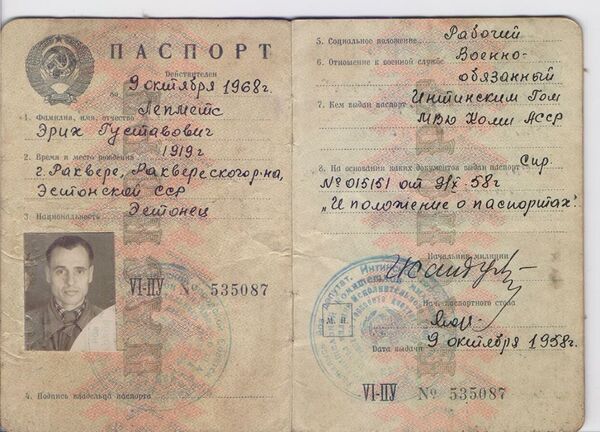 ПАСПОРТ
Действителен
по 9 октября 1968г.
Лепметс
1. Фамилия, имя, отчество
Эрих Густавович
1919 г
2. Время и место рождения
г. Раквере, Раквереского р-на,
Эстонской ССР
3. Национальность Эстонец
VI-ПУ № 535087
4. Подпись владельца паспорта
5. Социальное положение Рабочий
6. Отношение к военной службе Военно-
обязанный
7. Кем выдан паспорт Интинским Гом
МВД Коми АССР
8. На основании каких документов выдан паспорт Спр.
№ 015151 от 9/X-58г
"И положение о паспортах".
Начальник милиции
Нач. паспортного стола
М. П.
9 октября 1958г.
Дата выдачи
VI-ПУ № 535087